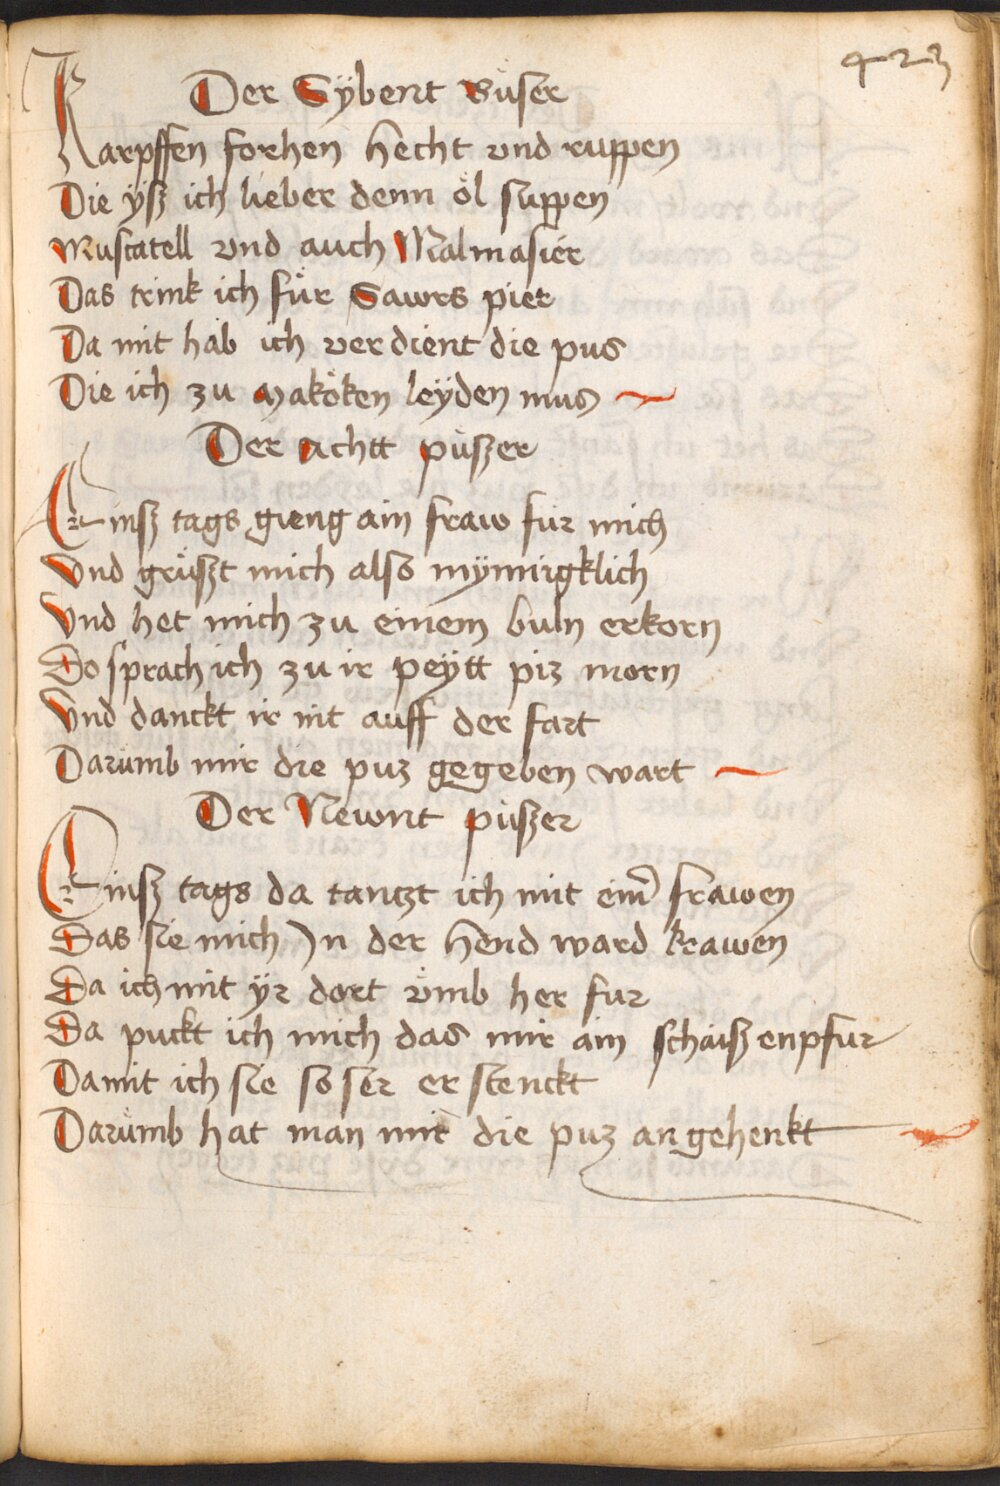 423
Der Sÿbent Büser
Karpffen forhen hecht vnd ruppen
Die ÿsz ich lieber denn öl suppen
Muscatell vnd auch Malmasier
Das trink ich für Sawrs pier
Da mit hab ich verdient die pus
Die ich zu maköken leÿden mus
Der achtt püszer
Einsz tags gieng ain fraw für mich
Vnd grüszt mich also mÿnnigklich
Vnd het mich zu einem buln erkorn
Do sprach ich zu ir peÿtt piz morn
Vnd danckt ir nit auff der fart
Darümb mir die puz gegeben wart
Der Newnt püszer
Einsz tags da tantzt ich mit eim̄ frawen
Das sie mich Jn der hend ward krawen
Da ich mit ÿr dort vmb her fur
Da puckt ich mich das mir ain schaiszenpfur
Damit ich sie so ser er stenckt
Darümb hat man mir die puz angehenkt